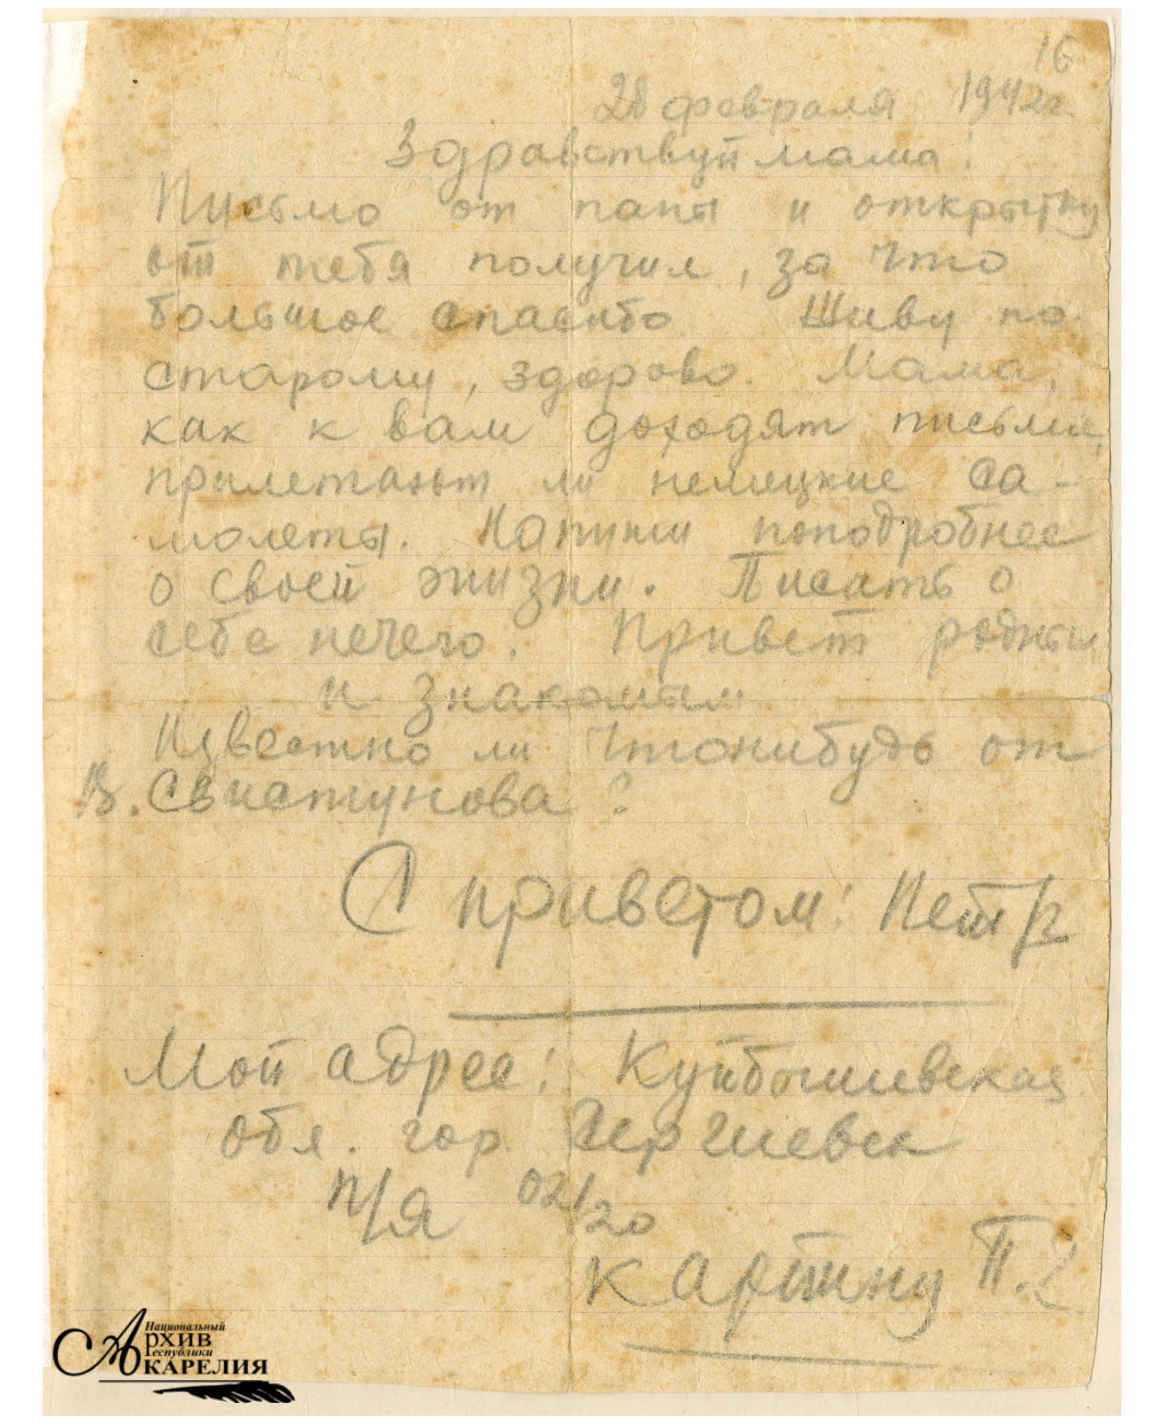 16
28 февраля 1942г.
Здравствуй мама!
Письмо от папы и открытку
от тебя получил, за что
большое спасибо Живу по-
старому, здорово. Мама,
как к вам доходят письма,
прилетают ли немецкие са-
молеты. Напиши поподробнее
о своей жизни. Писать о
себе нечего. Привет родным
и знакомым
Известно ли чтонибудь от
В. Свистунова?
С приветом: Петр
Мой адрес: Куйбышевская
обл. гор. Сергиевск
п/я 02/20
Картину П.
Национальный
Архив
Республики
Карелия